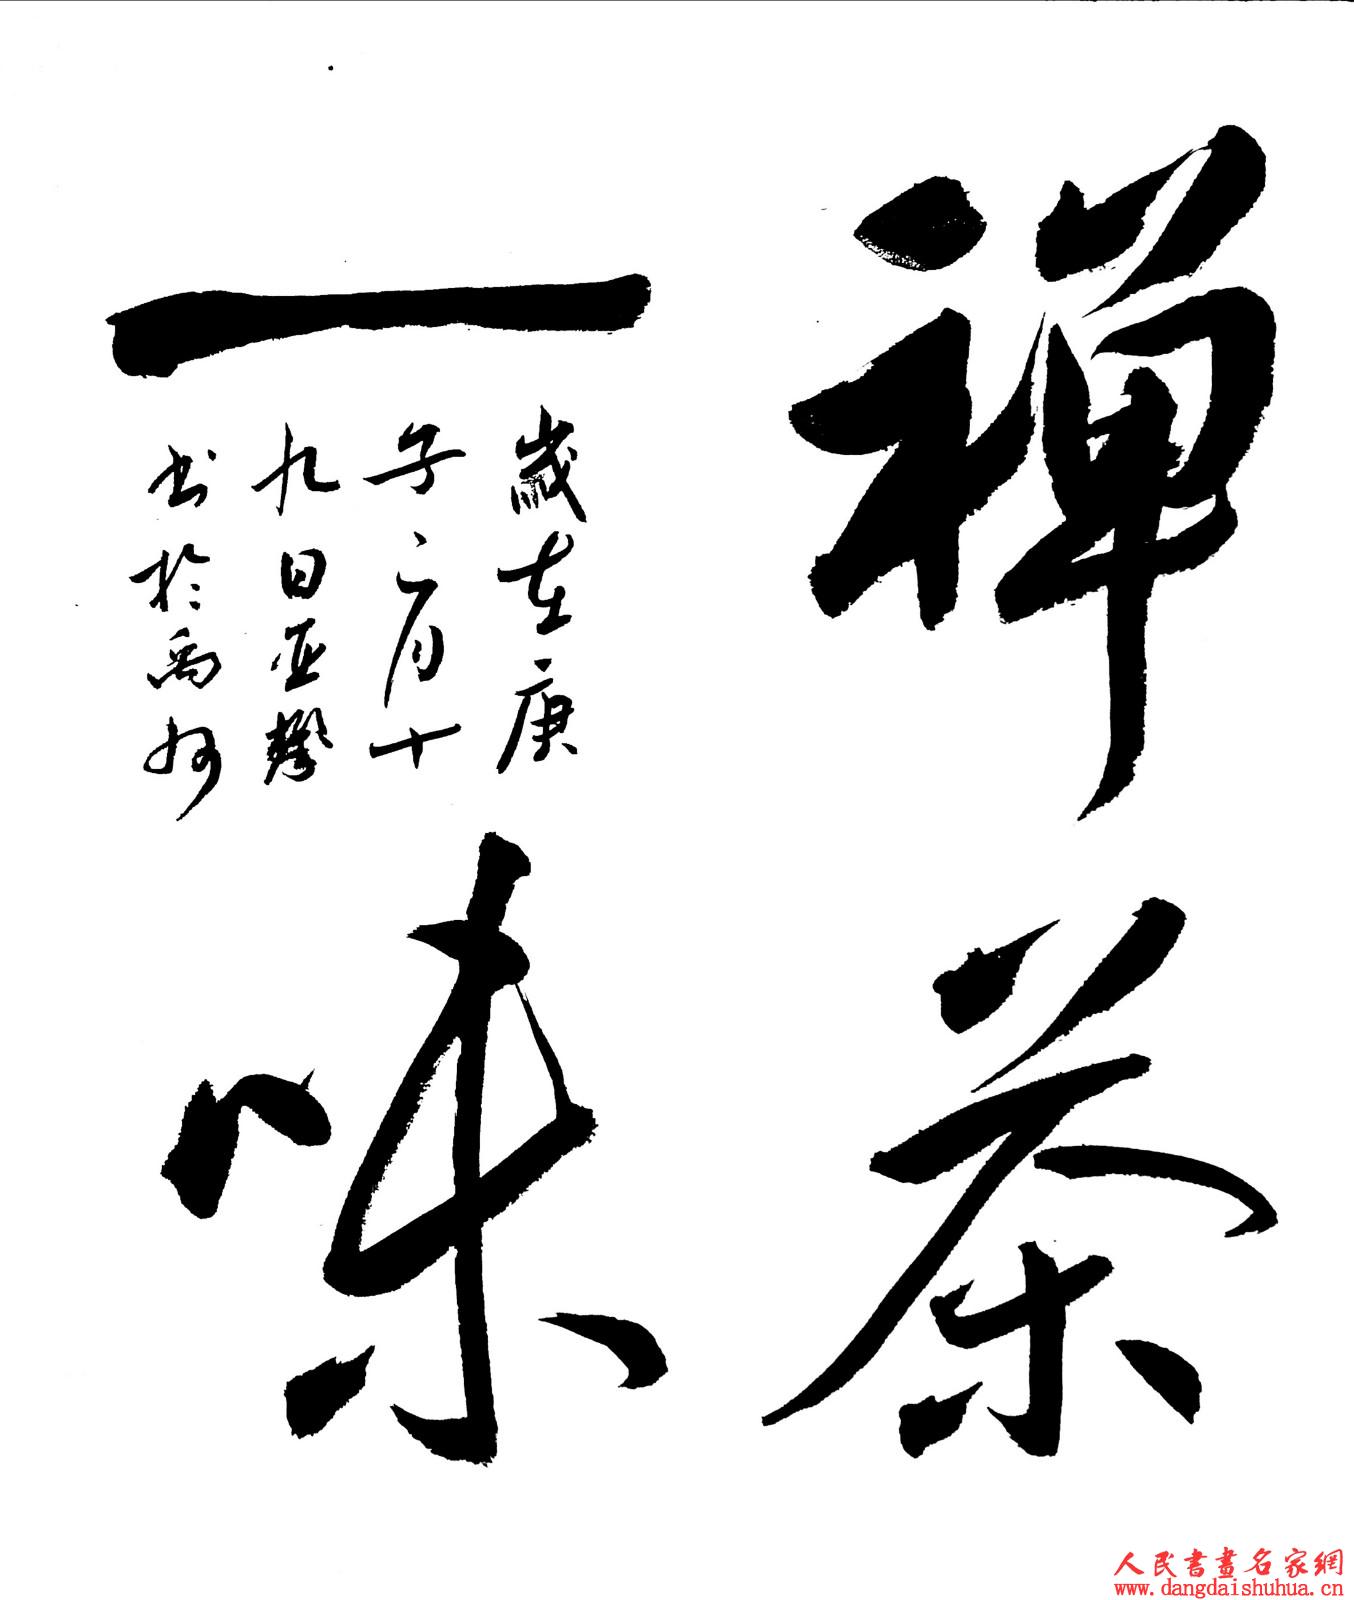 禅茶
一味
歲在庚
子二月十
九日亚攀
书於禹州
人民書畫名家網
www.dangdaishuhua.cn